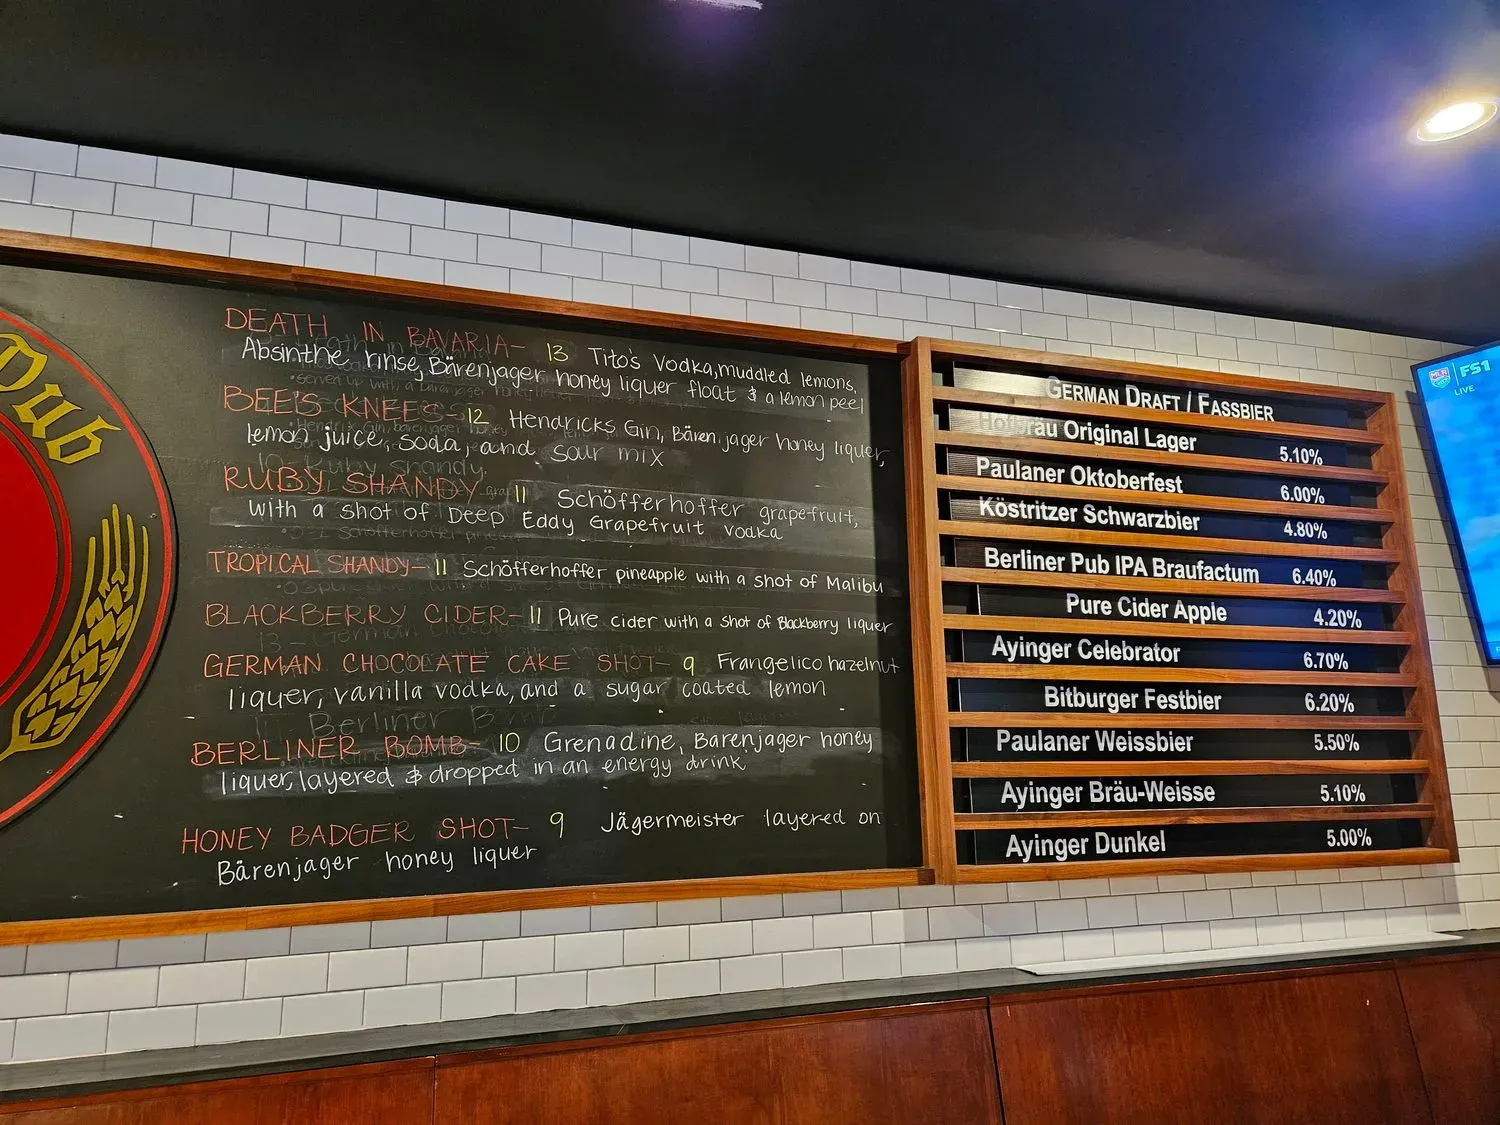 Pub
DEATH IN BAVARIA- 13 Tito's Vodka, muddled lemons,
Absinthe rinse, Bärenjager honey liquer float & a lemon peel
BEE'S KNEES- 12 Hendricks Gin, Bären jager honey liquer,
lemon juice, soda, and sour mix
RUBY SHANDY 11 Schöfferhoffer grapefruit,
with a shot of Deep Eddy Grapefruit vodka
TROPICAL SHANDY- 11 Schöfferhoffer pineapple with a shot of Malibu
BLACKBERRY CIDER- 11 Pure cider with a shot of Blackberry liquer
GERMAN CHOCOLATE CAKE SHOT- 9 Frangelico hazelnut
liquer, vanilla vodka, and a sugar coated lemon
BERLINER BOMB- 10 Grenadine, Barenjager honey
liquer, layered & dropped in an energy drink
HONEY BADGER SHOT- 9 Jägermeister layered on
Bärenjager honey liquer
GERMAN DRAFT / FASSBIER
Hofbrau Original Lager 5.10%
Paulaner Oktoberfest 6.00%
Köstritzer Schwarzbier 4.80%
Berliner Pub IPA Braufactum 6.40%
Pure Cider Apple 4.20%
Ayinger Celebrator 6.70%
Bitburger Festbier 6.20%
Paulaner Weissbier 5.50%
Ayinger Bräu-Weisse 5.10%
Ayinger Dunkel 5.00%
MLR FS1
LIVE